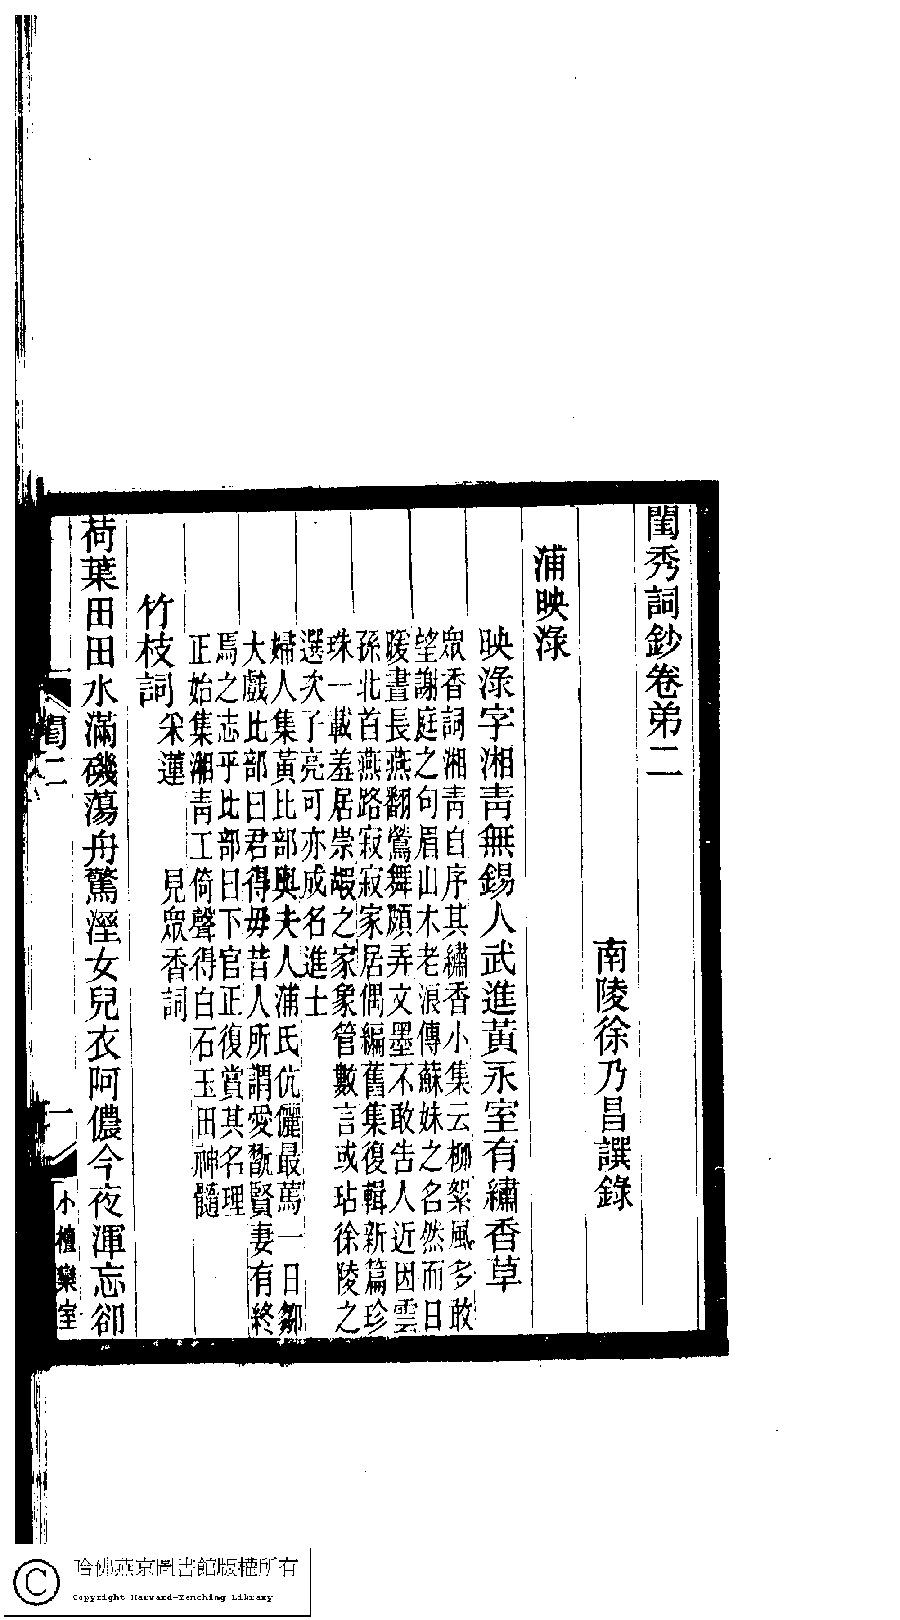 閨秀詞鈔卷弟二
南陵徐乃昌譔錄
蒲映淥
映淥字湘青無錫人武進黃永室有繡香草
眾香詞湘青自序其繡香小集云柳絮風多敢
望謝庭之句眉山木老浪傳蘇妹之名然而日
暖晝長燕翻鶯舞頗弄文墨不敢告人近因雲
孫北首燕路寂寂家居偶編舊集復輯新篇珍
珠一載羞居崇嘏之家象管數言或玷徐陵之
選次子亮可亦成名進士
婦人集黃比部與夫人蒲氏伉儷最篤一日鄒
大戲比部曰君得毋昔人所謂愛翫賢妻有終
焉之志乎比部曰下官正復賞其名理
正始集湘青工倚聲得白石玉田神髓
竹枝詞 采蓮 見眾香詞
荷葉田田水滿磯蕩舟驚溼女兒衣阿儂今夜渾忘卻
閨二
一
小檀欒室
哈佛燕京圖書館版權所有
Copyright Harvard-Yenching Library